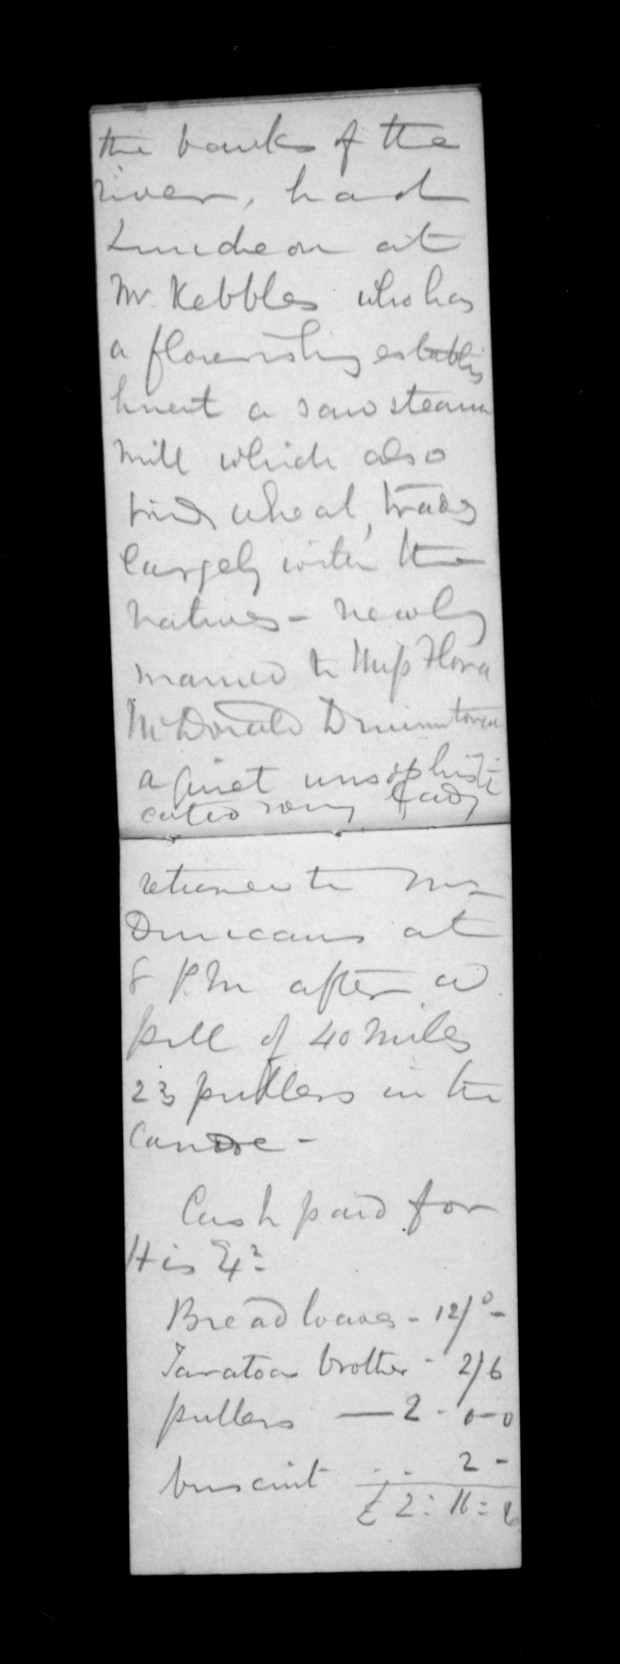 the banks of the
river, had
Luncheon at
Mr. Kebbles who has
a flourishing establis
hment a saw steam
mill which also
wheat, trades
largely with the
natives - newly
married to Miss Flora
McDonald
a quiet unsophisti-
cated young lady
returned to Mr
Duncans at
8 P.M after a
pull of 40 miles
23 pullers in the
Canoe -
Cash paid for
His Ex:
Bread loaves - 12/0 -
Taratoas brother - 2/6
pullers — 2 - 0 - 0
.. 2 -
£ 2 : 16 : 6